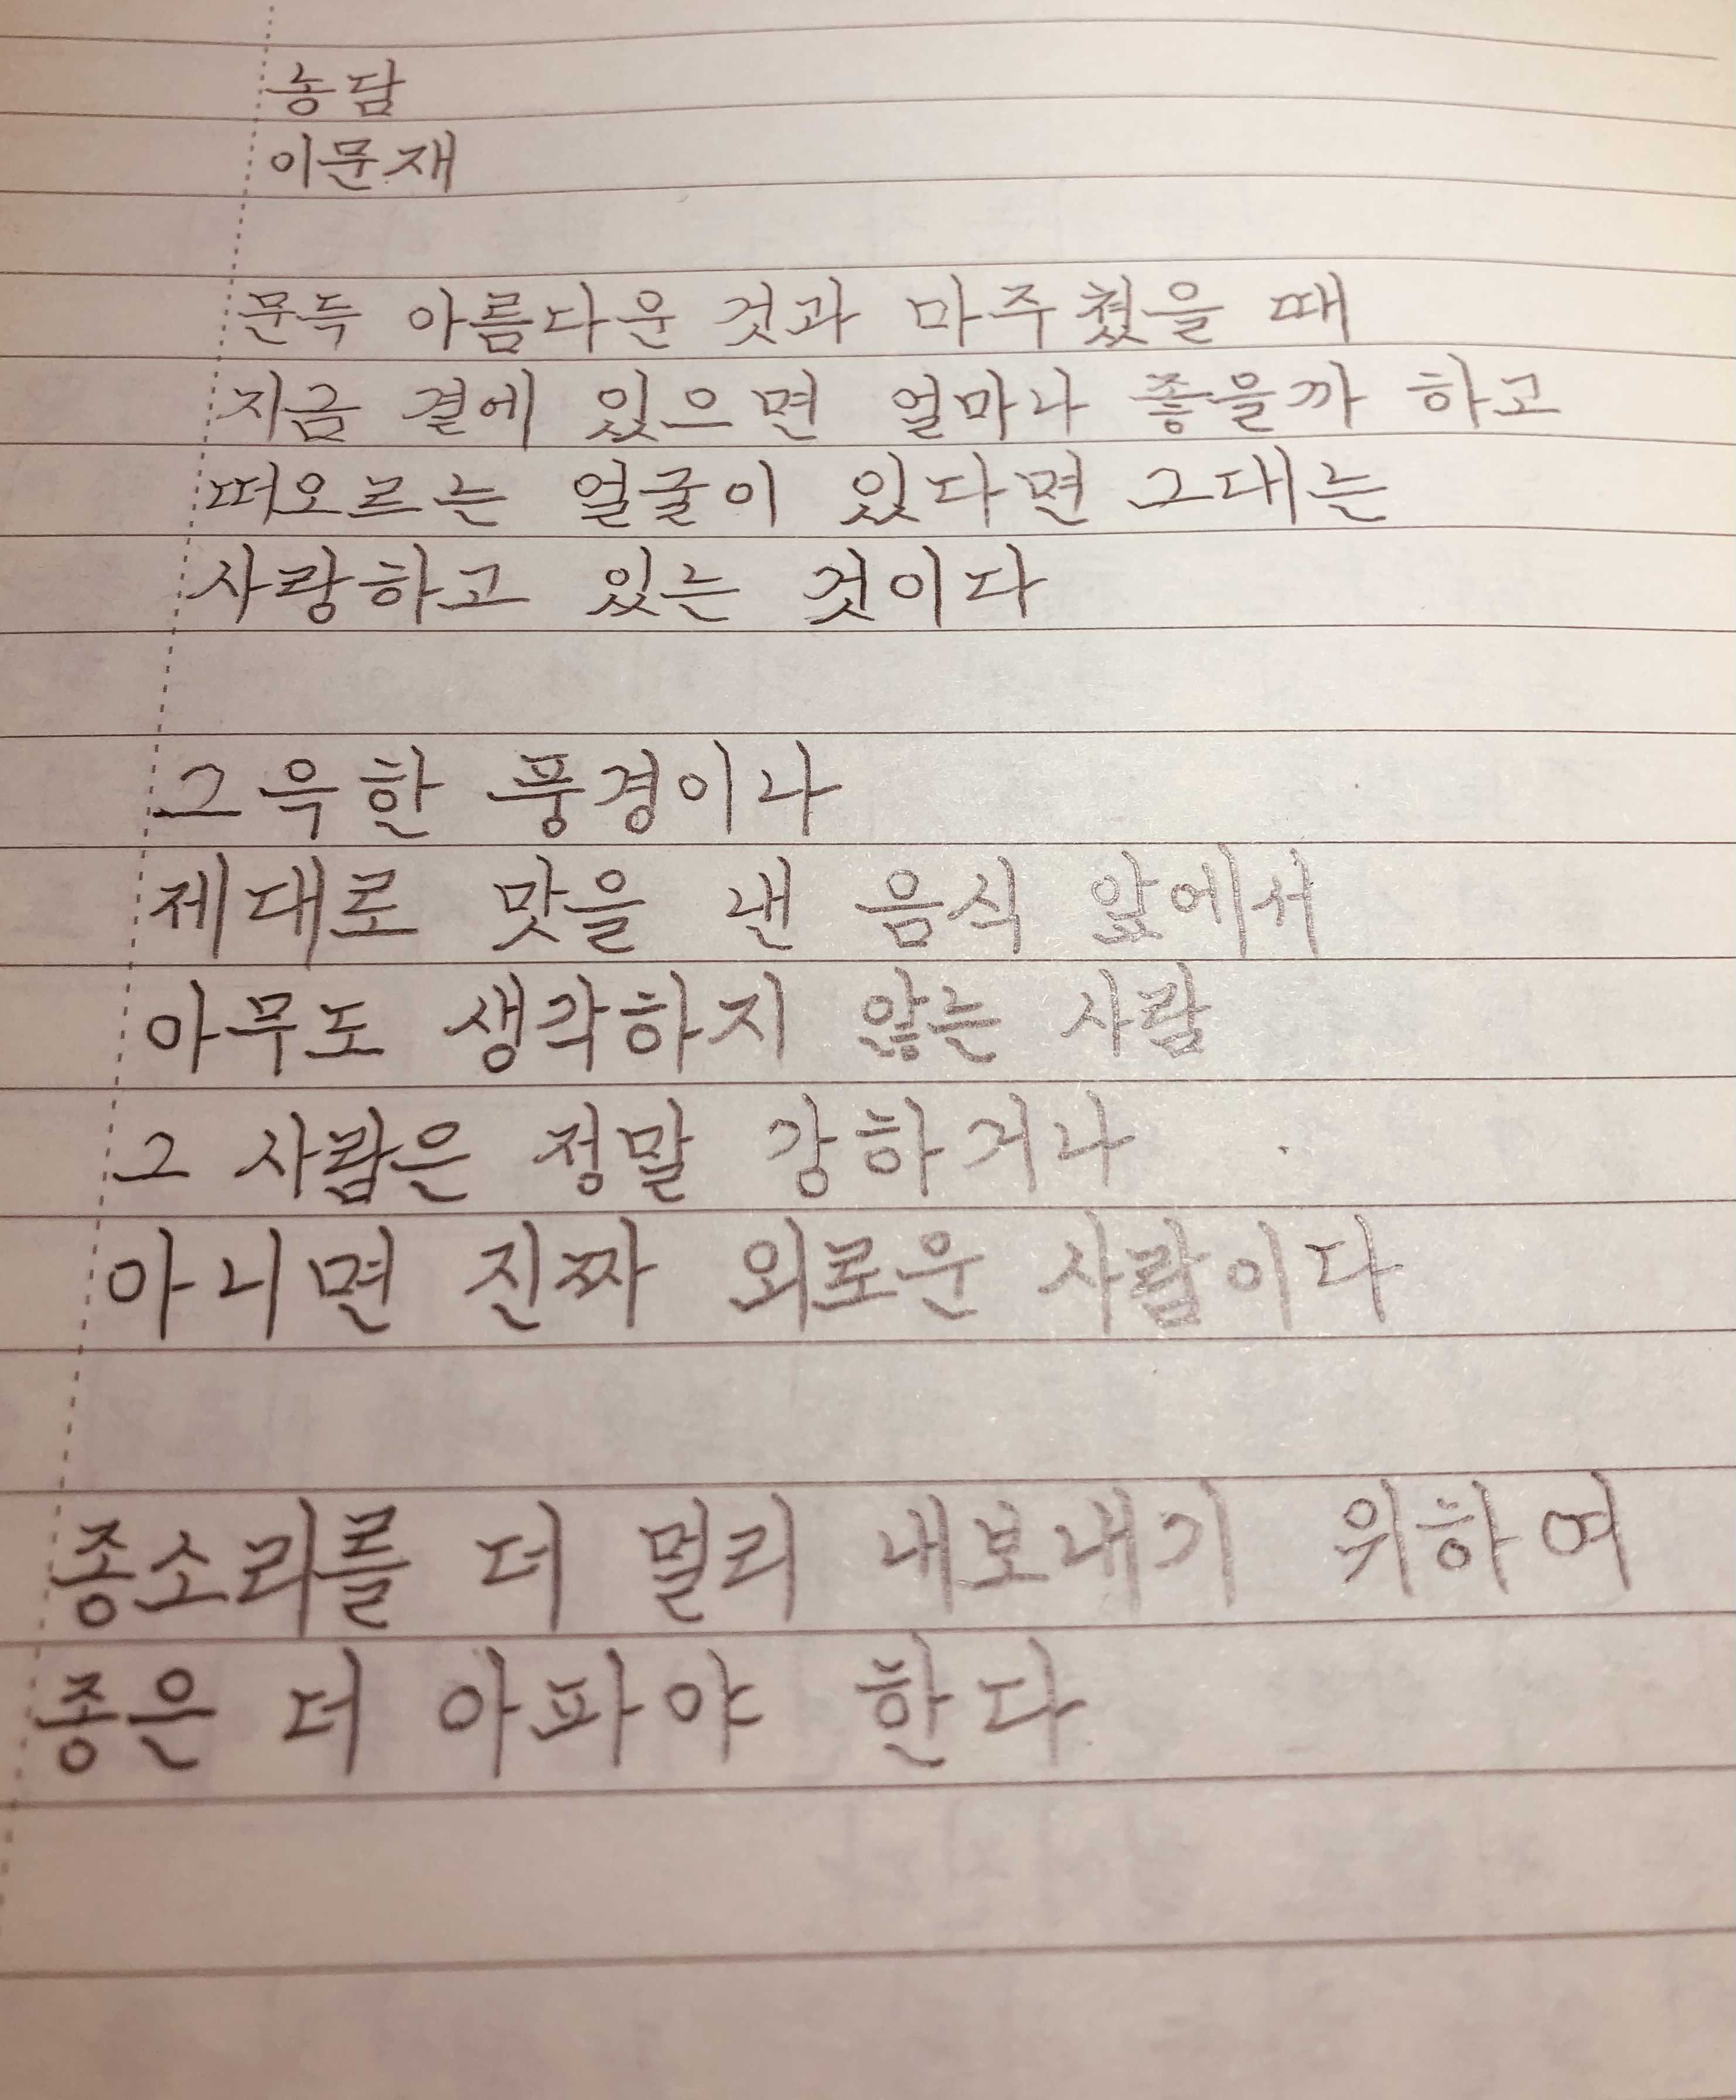 농담
이문재
문득 아름다운 것과 마주쳤을 때
지금 곁에 있으면 얼마나 좋을까 하고
떠오르는 얼굴이 있다면 그대는
사랑하고 있는 것이다
그윽한 풍경이나
제대로 맛을 낸 음식 앞에서
아무도 생각하지 않는 사람
그 사람은 정말 강하거나
아니면 진짜 외로운 사람이다
종소리를 더 멀리 내보내기 위하여
종은 더 아파야 한다